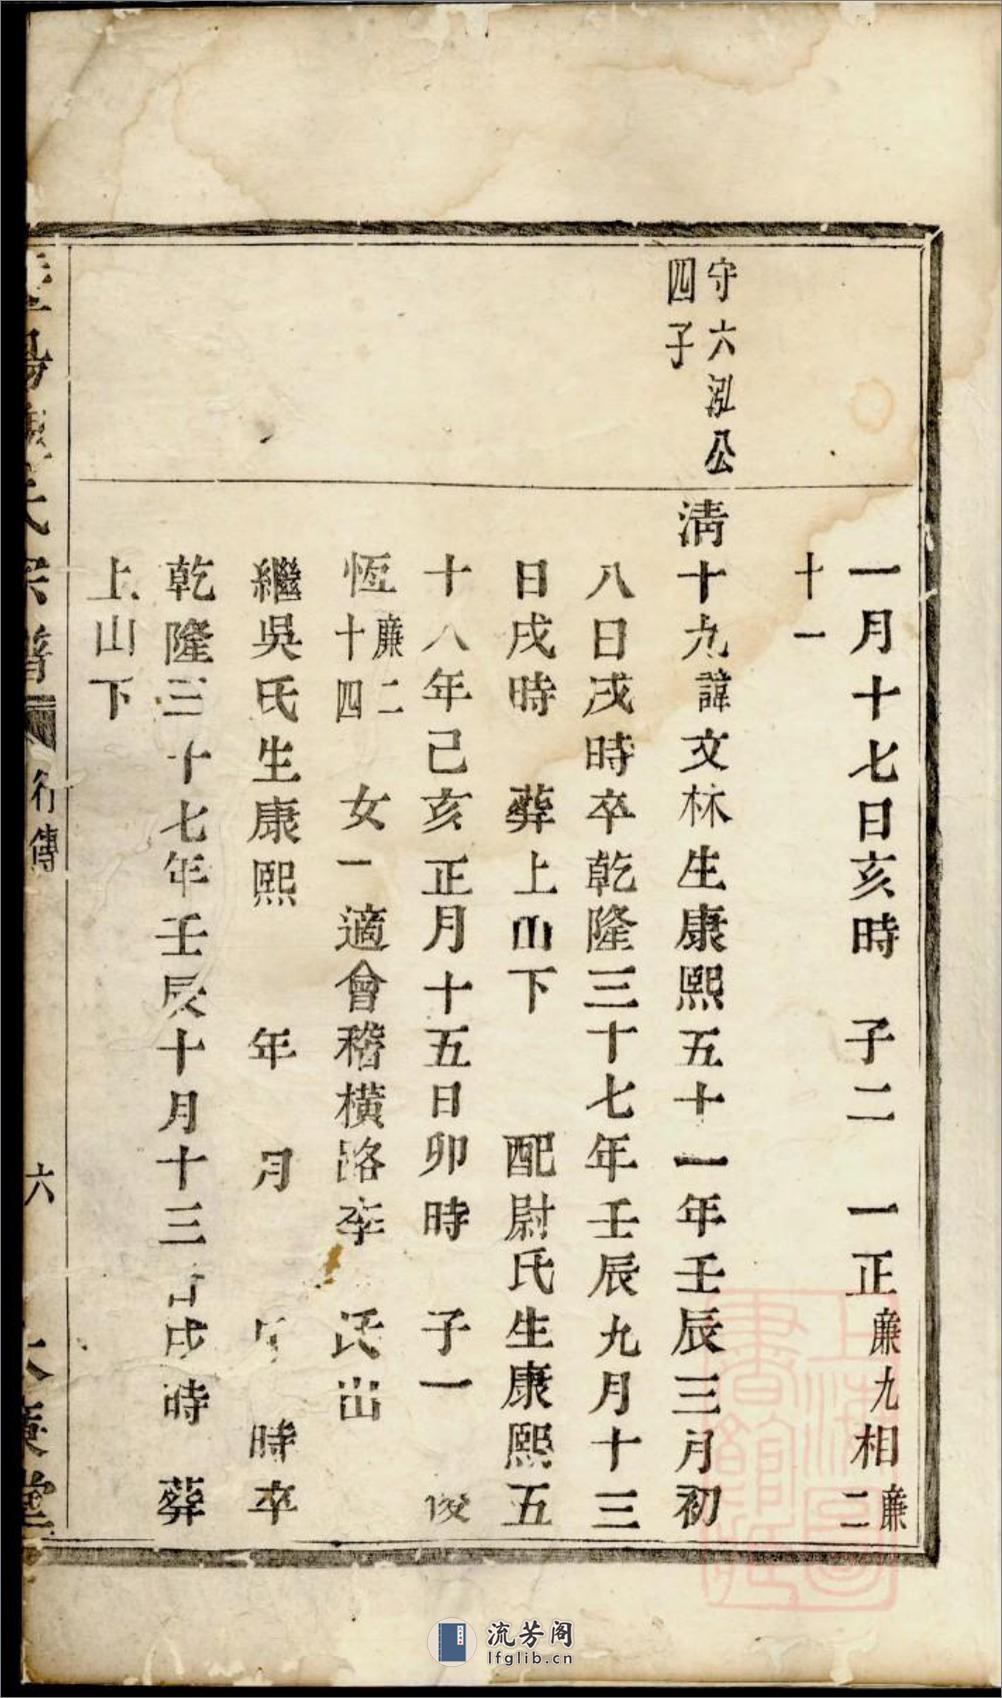 一月十七日亥時　子二　一正廉九相廉二
十一
守六泓公
四子
清十九諱文林生康熙五十一年壬辰三月初
八日戌時卒乾隆三十七年壬辰九月十三
日戌時　葬上山下　配尉氏生康熙五
十八年己亥正月十五日卯時　子一　俊
恆廉二十四　女一適會稽橫路李　氏出
繼吳氏生康熙　年　月　時卒
乾隆三十七年壬辰十月十三戌時　葬
上山下
氏宗譜
行傳
六
堂
上海圖書館藏
流芳阁
lfglib.cn